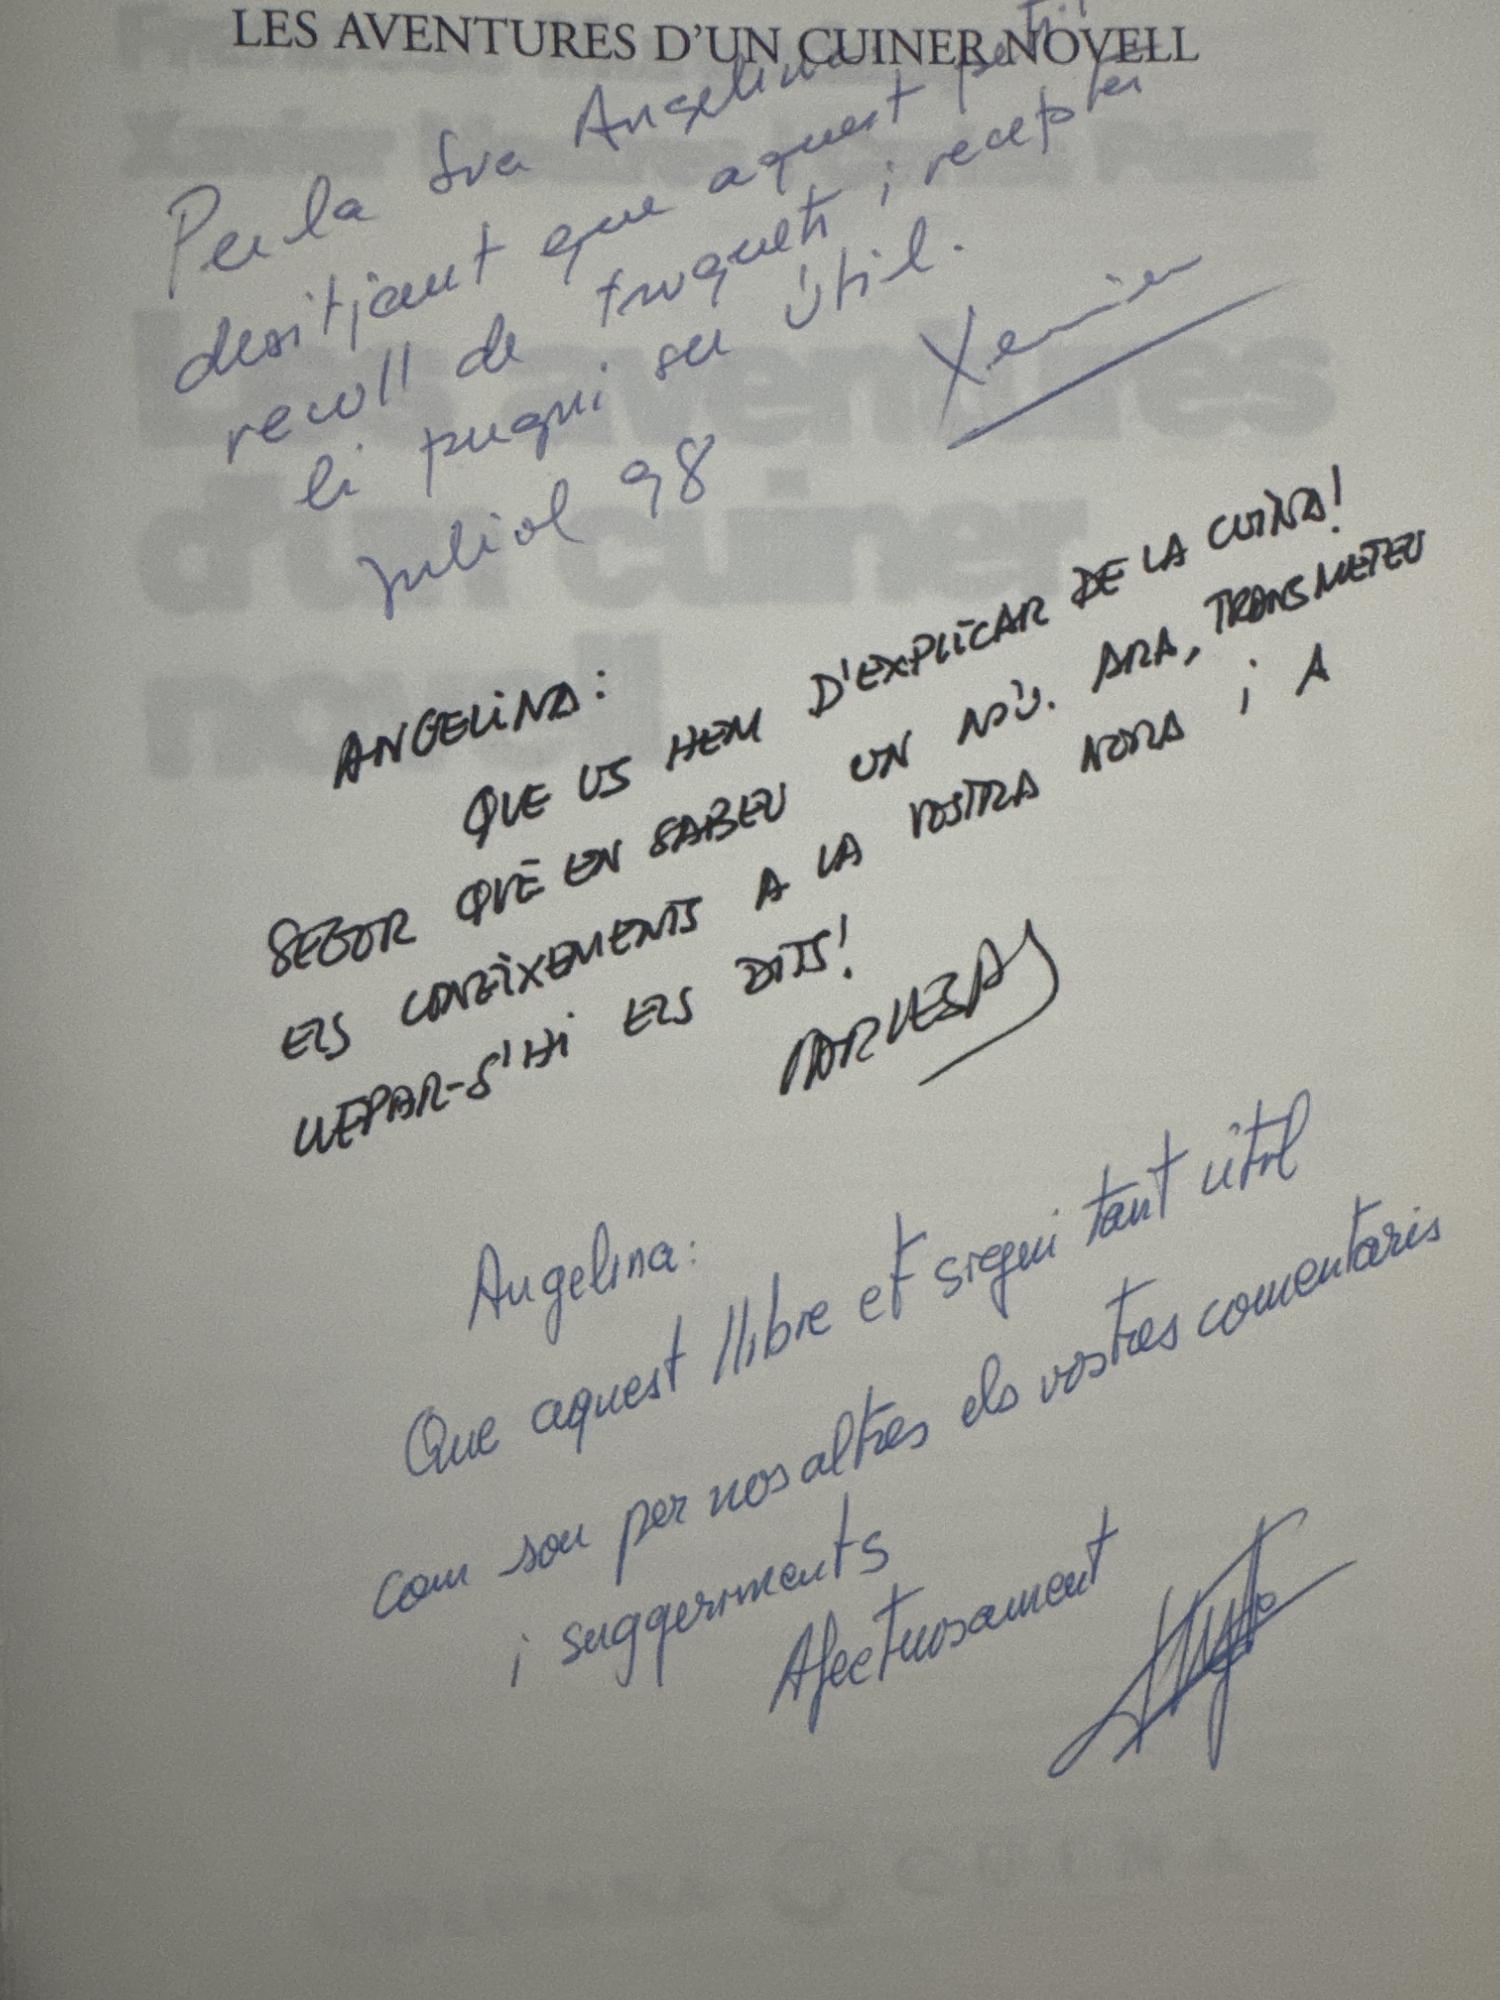 LES AVENTURES D'UN CUINER NOVELL
Per la Sra Angelina
desitjant que aquest petit
recull de truquets i receptes
li pugui ser útil.
Xavier
Juliol 98
ANGELINA:
QUE US HEM D'EXPLICAR DE LA CUINA!
SEGUR QUÈ EN SABEU UN NOU. ARA, TRANSMETEU
ELS CONEIXEMENTS A LA VOSTRA NORA i A
LLEPAR-S'HI ELS DITS!
Angelina:
Que aquest llibre et siegui tant útil
com son per nosaltres els vostres comentaris
i suggeriments
Afectuosament
Les aventures
d'un cuiner
novell
CUINA